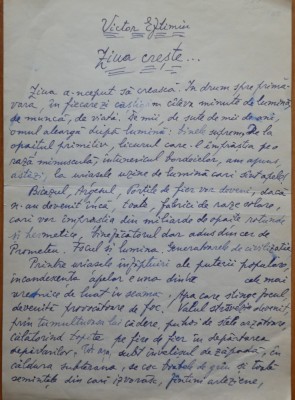 Victor Eftimiu
Ziua crește...
Ziua a-nceput să crească. În drum spre primă-
vara, în fiecare zi câștigăm câteva minute de lumină,
de muncă, de viață. De mii, de sute de mii de ani,
omul aleargă după lumină: suprem. De la
opaițul primitiv, licurul care-l împrăștia pe o
rază minusculă, întunericul bordeielor, am ajuns,
astăzi, la uriașele uzine de lumină
Bicazul, Argeșul, Porțile de fier vor deveni, dacă
n-au devenit încă, fabrici de raze solare,
cari vor împrăștia din miliarde de opaițe rotunde
și hermetice, însuflețitorul dar adus din cer de
Prometeu. Focul și lumina. Generatoarele de civilizație
Printre uriașele înfăptuiri ale puterii populare,
incandescența apelor e una dintre cele mai
vrednice de luat în seamă. Apa care stinge focul
devenită provocatoare de foc. Valul devenit,
prin tumultuoasa lui cădere, puhoi de stele arzătoare,
călătorind pe fire de fier în depărtarea
depărtărilor, sub învelișul de zăpadă, în
căldura subterană, se coc boabele de grâu și toate
semințele din care izvorăsc, fântâni arteziene,